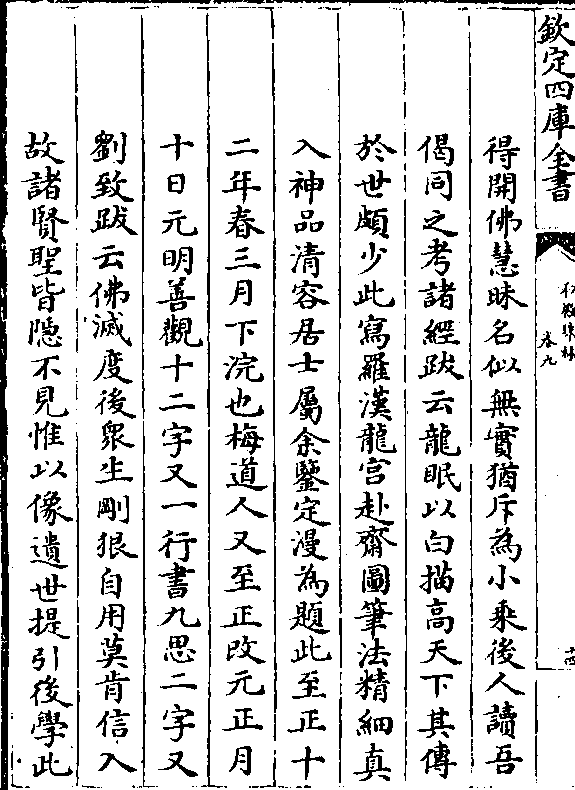 欽定四庫全書
秘殿珠林
卷九
十四
得開佛慧昧名似無實猶斥為小乘後人讀吾
偈同之考諸經跋云龍眠以白描高天下其傳
於世頗少此寫羅漢龍宮赴齋圖筆法精細真
入神品清容居士屬余鑒定漫為題此至正十
二年春三月下浣也梅道人又至正改元正月
十日元明善觀十二字又一行書九思二字又
劉致跋云佛滅度後衆生剛狠自用莫肯信入
故諸賢聖皆隱不見惟以像遺世提引後學此